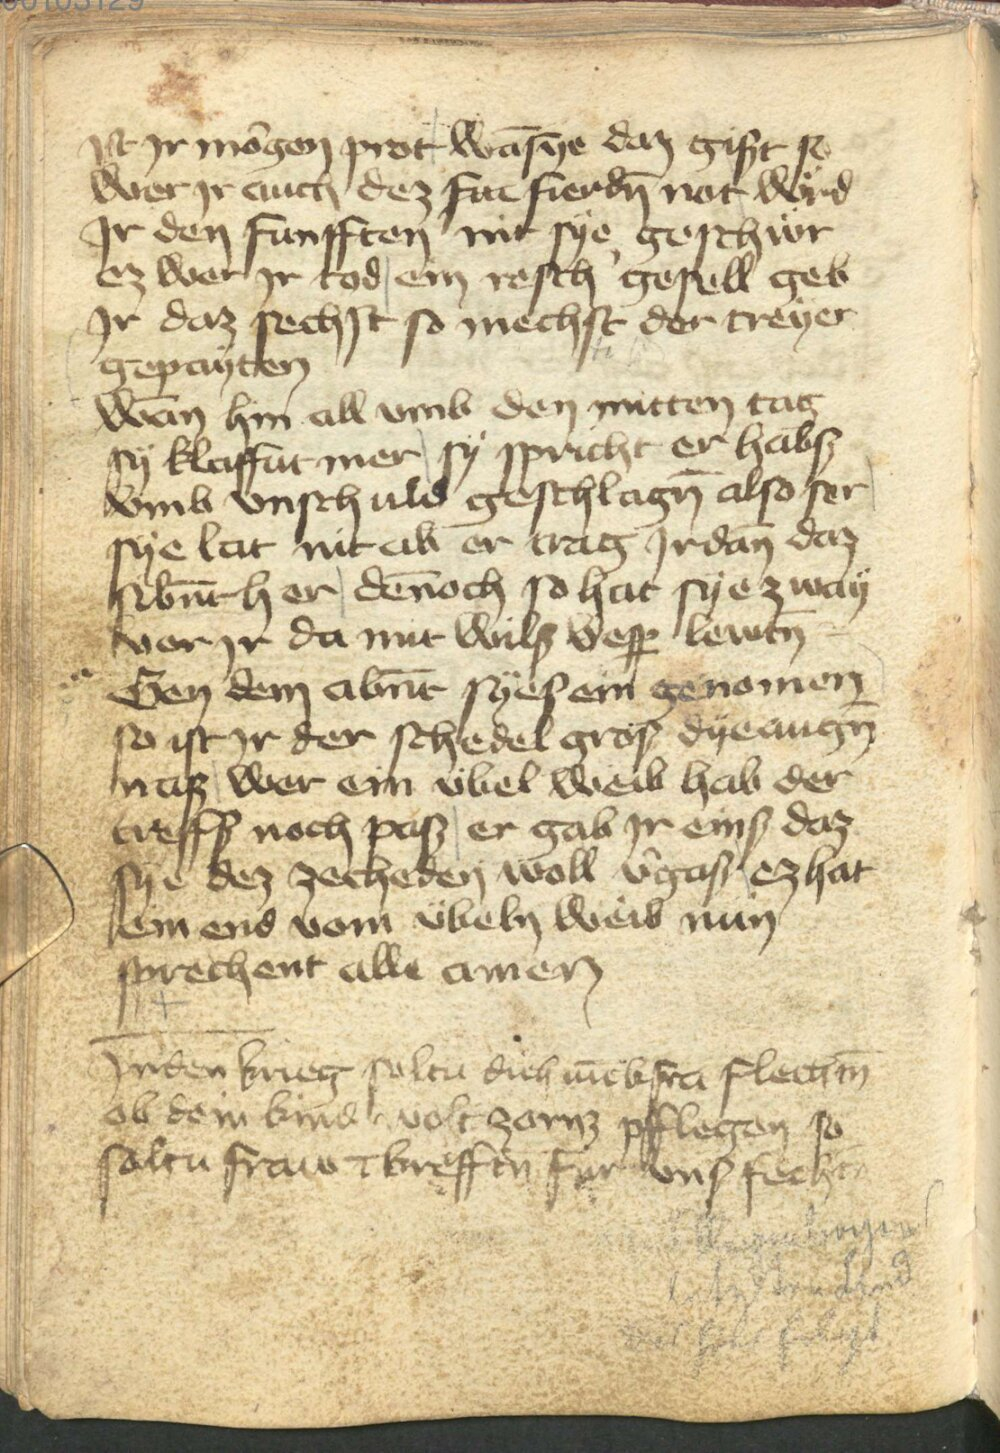 00105129
ist jr morgen prot wāsye daz gifft so
wer jr auch dez fue fierdn̄ not wyrd
Jr den funfften nit sye geschwor
ez wer jr tod ein resch gesell geb
Jr daz sechst so mechst der treyer
gepayten
Wān hin all vmb den mitten tag
sy klaffat mer sy spricht er habß
vmb vnschuld geschlagn̄ also ser
sye lat nit ab er trag jr dān daz
sibn̄t her dēnoch so hat sye zway
vor jr da mit wilß vesp lewtn̄
Gen dem abn̄t syes ein genomen
so ist jr der schedel groß dye augn̄
naß wer ein übel weib hab der
treffß noch paß er gab jr einß daz
sye dez zecheden woll v̄gaß ez hat
ein end vom übeln weib nun
sprechent alle amen
In den krieg soltu dich flechtn̄
ob dein kind volt zornz pflegen so
soltu fraw krefftn̄ fur vnß fecht